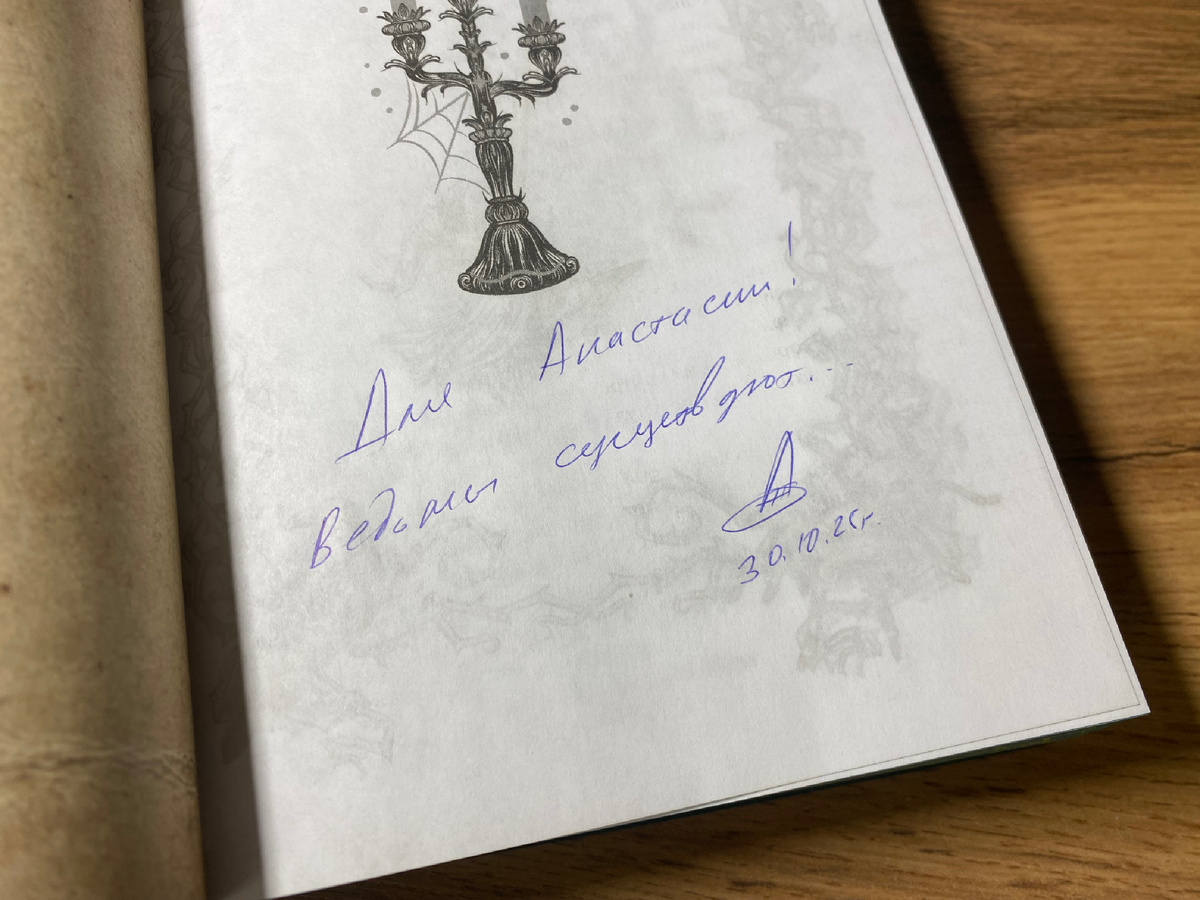 Для Анастасии!
Ведьмы существуют...
30.10.25г.